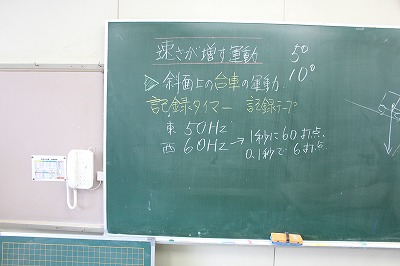 速さが増す運動 5°
▷斜面上の台車の運動 10°
記録タイマー 記録テープ
東 50Hz
西 60Hz → 1秒に60打点.
0.1秒で6打点